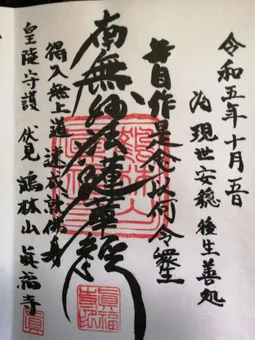 令和五年十月五日
為現世安穏後生善処
毎自作是念以何令衆生
南無妙法蓮華経
得入無上道速成就佛身
皇陵守護 伏見 鴻林山 眞福寺